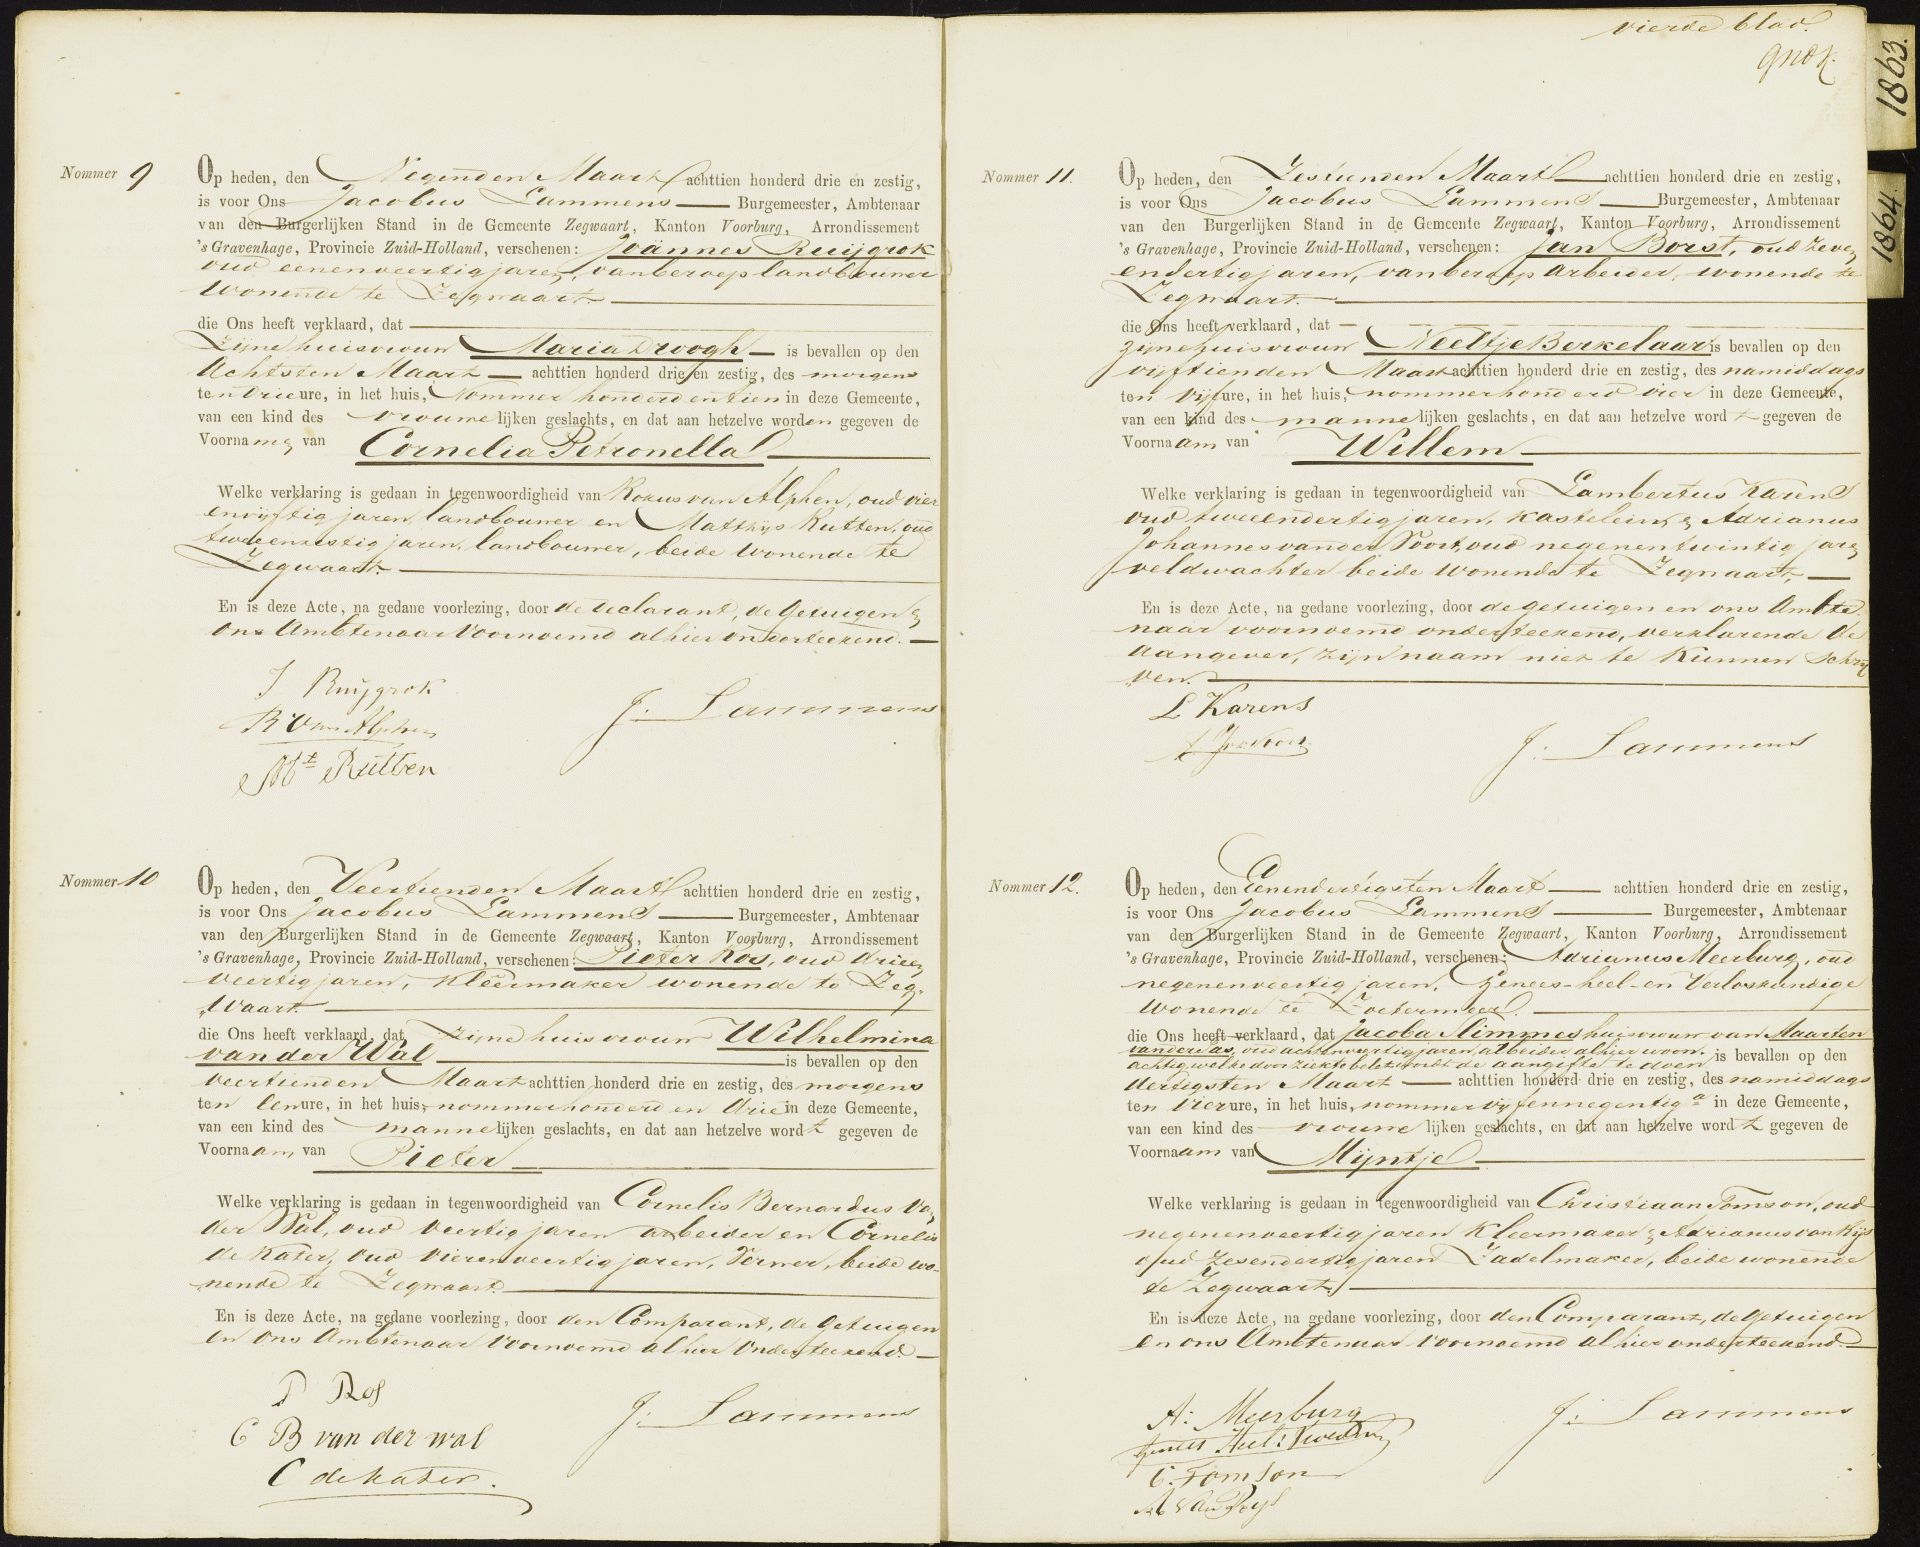 Nommer 9
Op heden, den Negenden Maart achttien honderd drie en zestig,
is voor Ons Jacobus Lammens Burgemeester, Ambtenaar
van den Burgerlijken Stand in de Gemeente Zegwaart, Kanton Voorburg, Arrondissement
's Gravenhage, Provincie Zuid-Holland, verschenen: Joännes Ruijgrok
oud eenenveertig jaren, van beroep landbouwer
wonende te Zegwaart.
die Ons heeft verklaard, dat
Zijne huisvrouw Maria Droogh is bevallen op den
Achtsten Maart achttien honderd drie en zestig, des morgens
ten Drie ure, in het huis, Nommer honderd en tien in deze Gemeente,
van een kind des vrouwelijken geslachts, en dat aan hetzelve worden gegeven de
Voornamen van Cornelia Petronella
Welke verklaring is gedaan in tegenwoordigheid van Rokus van Alphen, oud vier
en vijftig jaren, landbouwer en Matthijs Rutten, oud
tweeenzestig jaren, landbouwer, beide wonende te
Zegwaart.
En is deze Acte, na gedane voorlezing, door de declarant, de getuigen &
ons Ambtenaar voornoemd alhier onderteekend.
J Ruijgrok
R Van Alphen
J. Lammens
Mt Rutten
Nommer 10
Op heden, den Veertienden Maart achttien honderd drie en zestig,
is voor Ons Jacobus Lammens Burgemeester, Ambtenaar
van den Burgerlijken Stand in de Gemeente Zegwaart, Kanton Voorburg, Arrondissement
's Gravenhage, Provincie Zuid-Holland, verschenen: Pieter Ros, oud drieen
veertig jaren, Kleermaker wonende te Zeg-
waart.
die Ons heeft verklaard, dat zijne huisvrouw Wilhelmina
van der Wal is bevallen op den
veertienden Maart achttien honderd drie en zestig, des morgens
ten Een ure, in het huis, nommer honderd en drie in deze Gemeente,
van een kind des mannelijken geslachts, en dat aan hetzelve wordt gegeven de
Voornaam, van Pieter
Welke verklaring is gedaan in tegenwoordigheid van Cornelis Bernardus van
der Wal, oud veertig jaren arbeider en Cornelis
de Kater, oud vierenveertig jaren, Verwer, beide wo-
nende te Zegwaart.
En is deze Acte, na gedane voorlezing, door den Comparant, de getuigen
en ons Ambtenaar voornoemd alhier onderteekend.
P Ros
C B van der wal
J. Lammens
C de Kater.
vierde blad.
1863.
1864.
Nommer 11.
Op heden, den Zestienden Maart achttien honderd drie en zestig,
is voor Ons Jacobus Lammens Burgemeester, Ambtenaar
van den Burgerlijken Stand in de Gemeente Zegwaart, Kanton Voorburg, Arrondissement
's Gravenhage, Provincie Zuid-Holland, verschenen: Jan Borst, oud zeven
endertig jaren, van beroep arbeider, wonende te
Zegwaart.
die Ons heeft verklaard, dat
zijne huisvrouw Neeltje Berkelaar is bevallen op den
vijftienden Maart achttien honderd drie en zestig, des namiddags
ten Vijf ure, in het huis, nommer honderd vier in deze Gemeente,
van een kind des mannelijken geslachts, en dat aan hetzelve wordt gegeven de
Voornaam van Willem
Welke verklaring is gedaan in tegenwoordigheid van Lambertus Karens
oud tweeendertig jaren, kastelein, & Adrianus
Johannes van der Voort, oud negenentwintig jaren
veldwachter beide wonende te Zegwaart,
En is deze Acte, na gedane voorlezing, door de getuigen en ons Ambte
naar voornoemd onderteekend, verklarende de
aangever, zijn naam niet te kunnen schrij
ven.
L Karens
J. Lammens
Nommer 12.
Op heden, den Eenendertigsten Maart achttien honderd drie en zestig,
is voor Ons Jacobus Lammens Burgemeester, Ambtenaar
van den Burgerlijken Stand in de Gemeente Zegwaart, Kanton Voorburg, Arrondissement
's Gravenhage, Provincie Zuid-Holland, verschenen: Adrianus Meerburg, oud
negenenveertig jaren, Genees- heel- en Verloskundige
wonende te Zoetermeer.
die Ons heeft verklaard, dat Jacoba Slimmes huisvrouw van Maarten
van der Las, oud achtenveertig jaren, arbeider alhier woon-
achtig, welke door ziekte belet wordt de aangifte te doen is bevallen op den
dertigsten Maart achttien honderd drie en zestig, des namiddags
ten vier ure, in het huis, nommer vijfennegentig a in deze Gemeente,
van een kind des vrouwelijken geslachts, en dat aan hetzelve wordt gegeven de
Voornaam van Mijntje
Welke verklaring is gedaan in tegenwoordigheid van Christiaan Tomson, oud
negenenveertig jaren Kleermaker & Adrianus van Rijs
oud zesendertig jaren Zadelmaker, beide wonende
te Zegwaart.
En is deze Acte, na gedane voorlezing, door den Comparant, de getuigen
en ons Ambtenaar voornoemd alhier onderteekend.
A: Meerburg
J. Lammens
C. Tomson